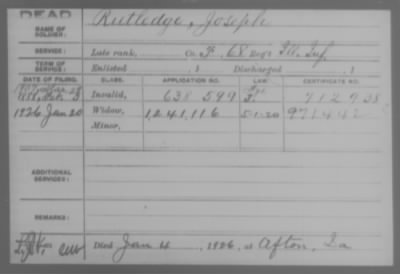 DEAD
NAME OF SOLDIER: Rutledge, Joseph
SERVICE: Late rank, Co. F, 68 Reg't Ill. Inf.
TERM OF SERVICE: Enlisted , 1 Discharged , 1
DATE OF FILING. CLASS. APPLICATION NO. LAW. CERTIFICATE NO.
Invalid, 638 599 712738
1926 Jan 20 Widow, 1,241,116 5-1-20 971442
Minor,
ADDITIONAL SERVICES:
REMARKS:
Died Jan 4, 1926, at Afton, Ia